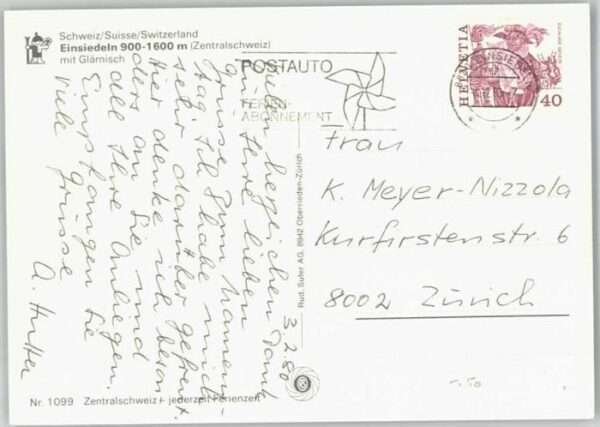 Schweiz/Suisse/Switzerland
Einsiedeln 900-1600 m (Zentralschweiz)
mit Glärnisch
POSTAUTO
FERIEN-
ABONNEMENT
HELVETIA
40
3.2.80
Vielen herzlichen Dank
für Ihre lieben
Grüsse zum Namens-
tag. Ich habe mich
sehr darüber gefreut.
Hier denke ich beson
ders an Sie und
all Ihre Anliegen.
Empfangen Sie
viele Grüsse
A. Hutter
Frau
K. Meyer-Nizzola
Kurfirstenstr. 6
8002 Zürich
Rud. Suter AG, 8942 Oberrieden-Zürich
Nr. 1099 Zentralschweiz + jederzeit Ferienzeit
1.50